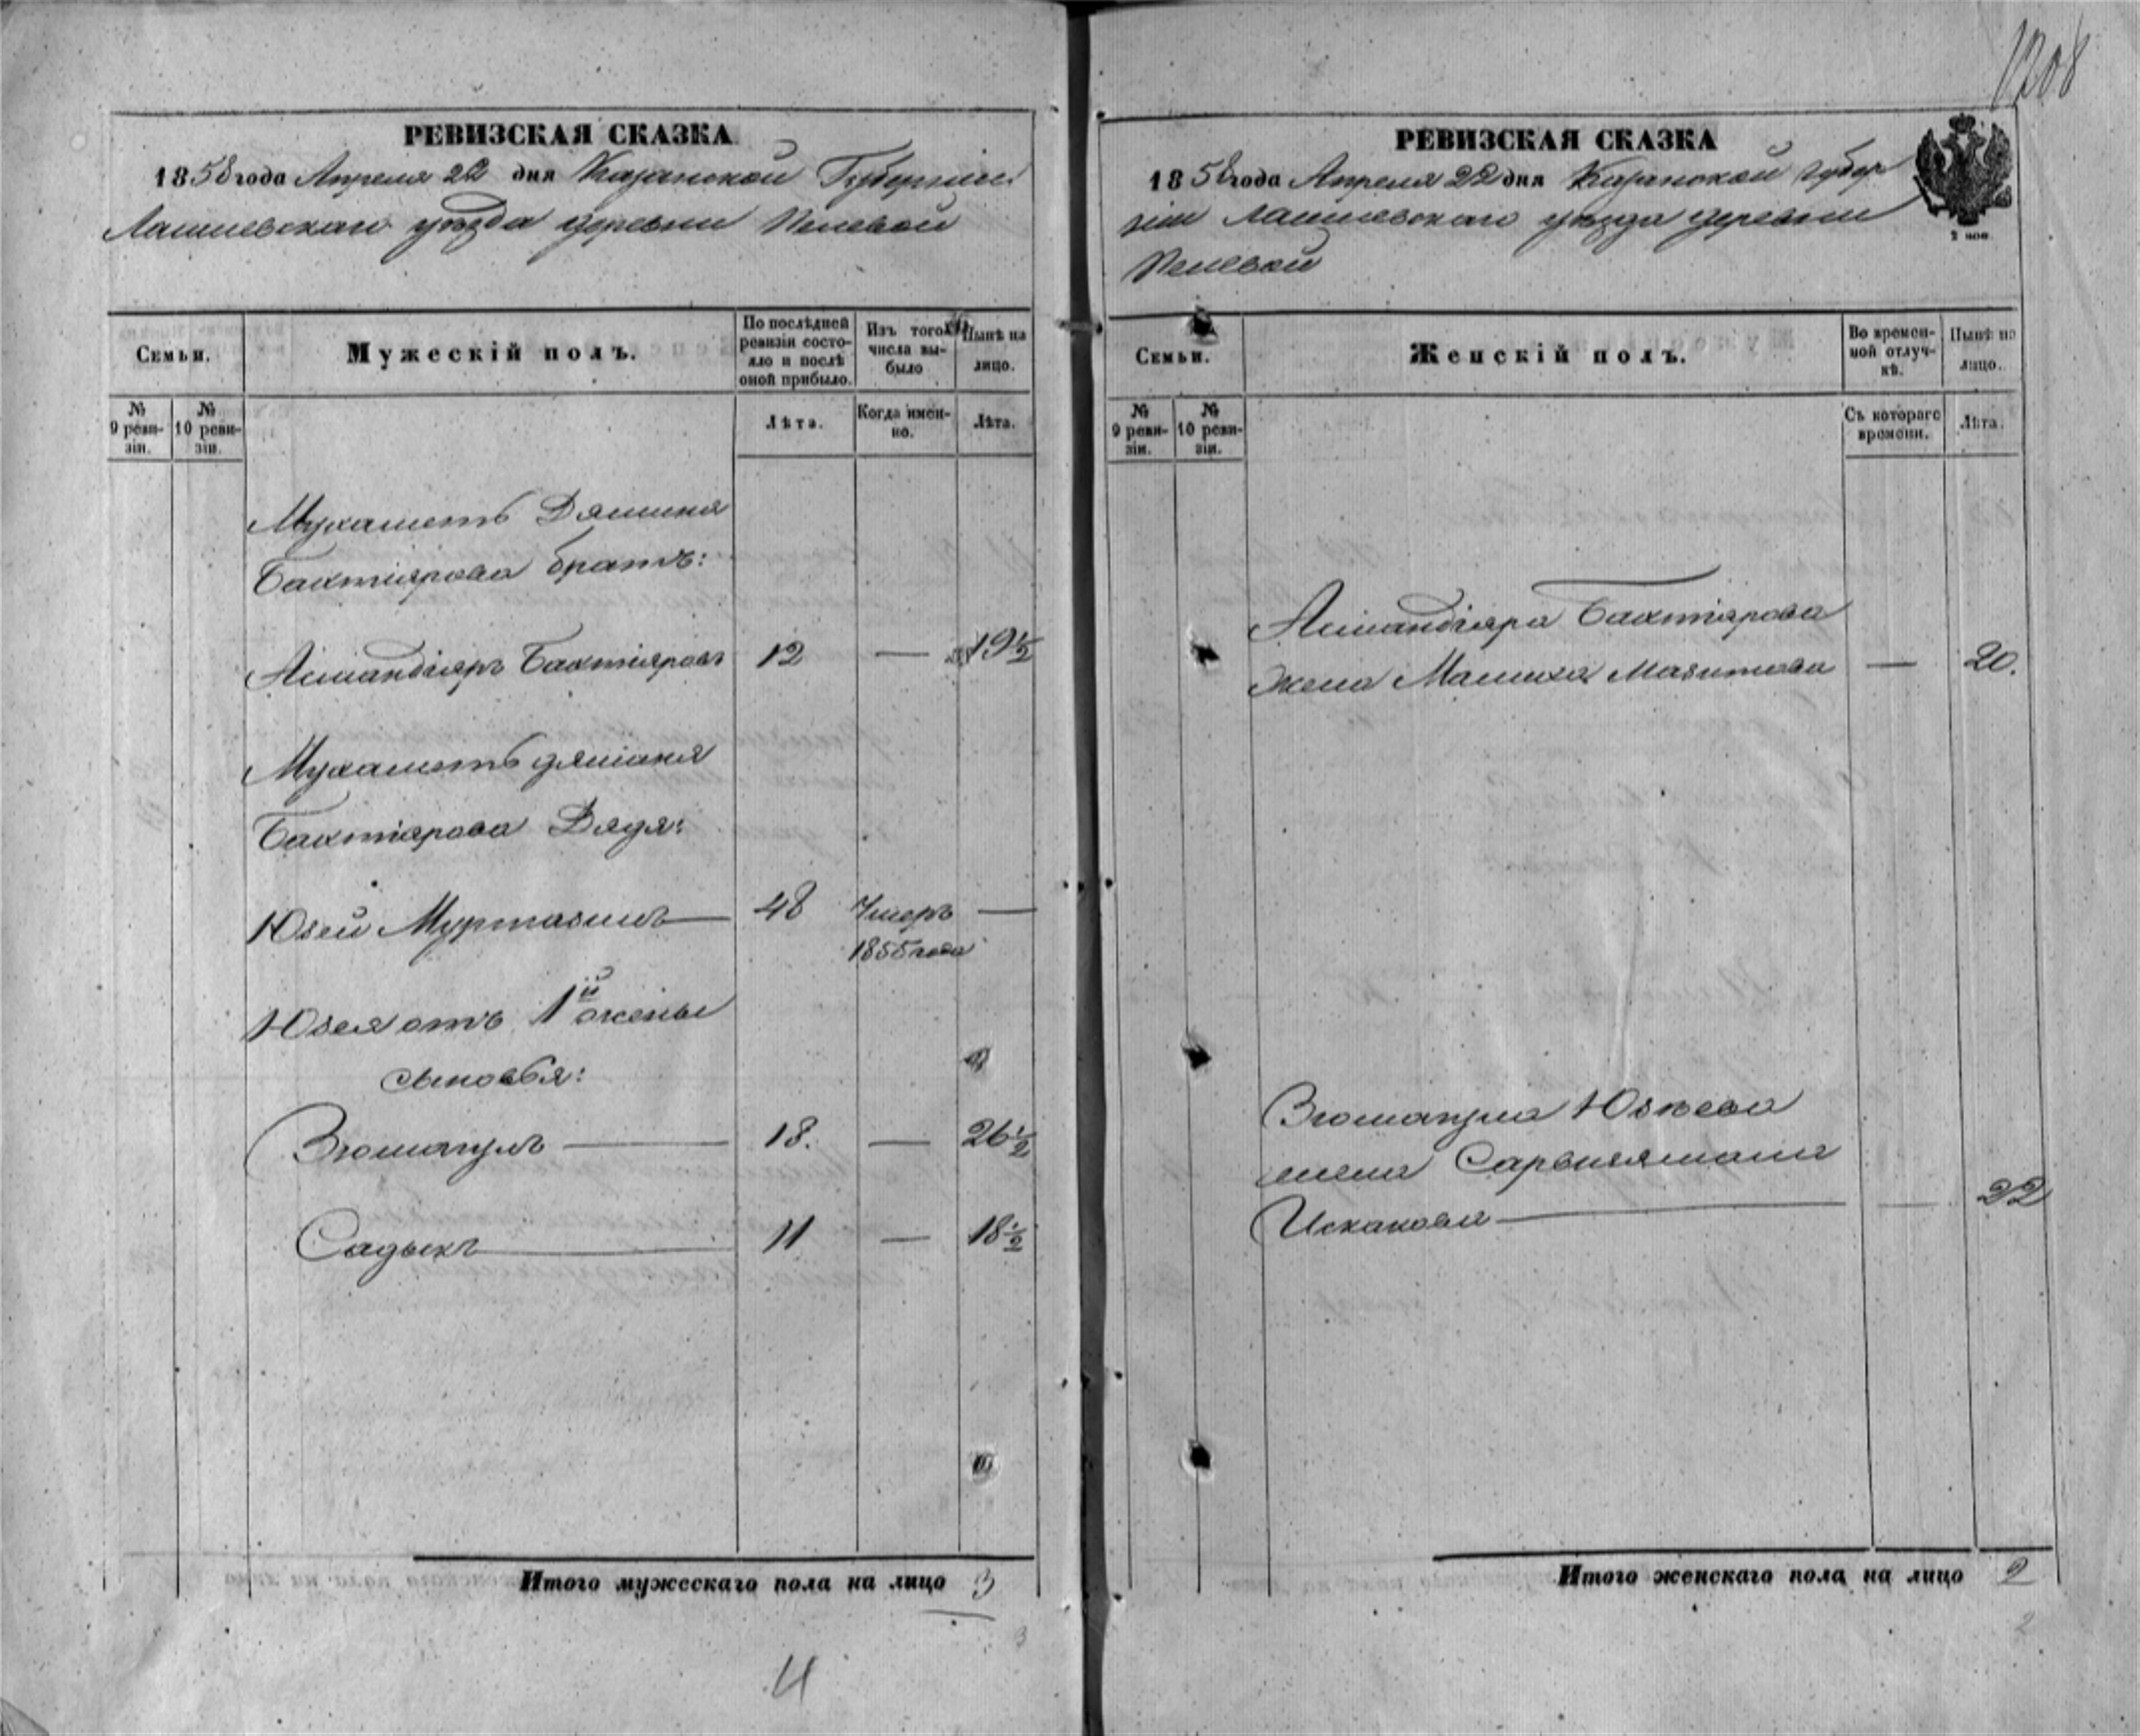 1208
РЕВИЗСКАЯ СКАЗКА
1858 года Апреля 22 дня Казанской Губернiи
Лаишевскаго уѣзда деревни
Семьи.
Мужескiй полъ.
По послѣдней ревизiи состояло и послѣ оной прибыло.
Изъ того числа выбыло
Нынѣ на лицо.
№ 9 ревизiи.
№ 10 ревизiи.
Лѣта.
Когда именно.
Лѣта.
Мухаметь
Бахтiярова братъ:
Бахтiяровъ 12 — 19 1/2
Мухаметь
Бахтiярова Дядя:
Юзей Муртазинъ — 48 Умеръ —
1855 года
Юзея отъ 1й жены
сыновья:
Зюмагулъ — 18. — 26 1/2
Садыкъ — 11 — 18 1/2
Итого мужескаго пола на лицо 3
4
РЕВИЗСКАЯ СКАЗКА
1858 года Апреля 22 дня Казанской Губер
нiи Лаишевскаго уѣзда деревни
2 коп.
Семьи.
Женскiй полъ.
Во временной отлучкѣ.
Нынѣ на лицо.
№ 9 ревизiи.
№ 10 ревизiи.
Съ котораго времени.
Лѣта.
Бахтiярова
жена — 20.
Зюмагула Юзѣева
жена
Искакова — 22
Итого женскаго пола на лицо 2